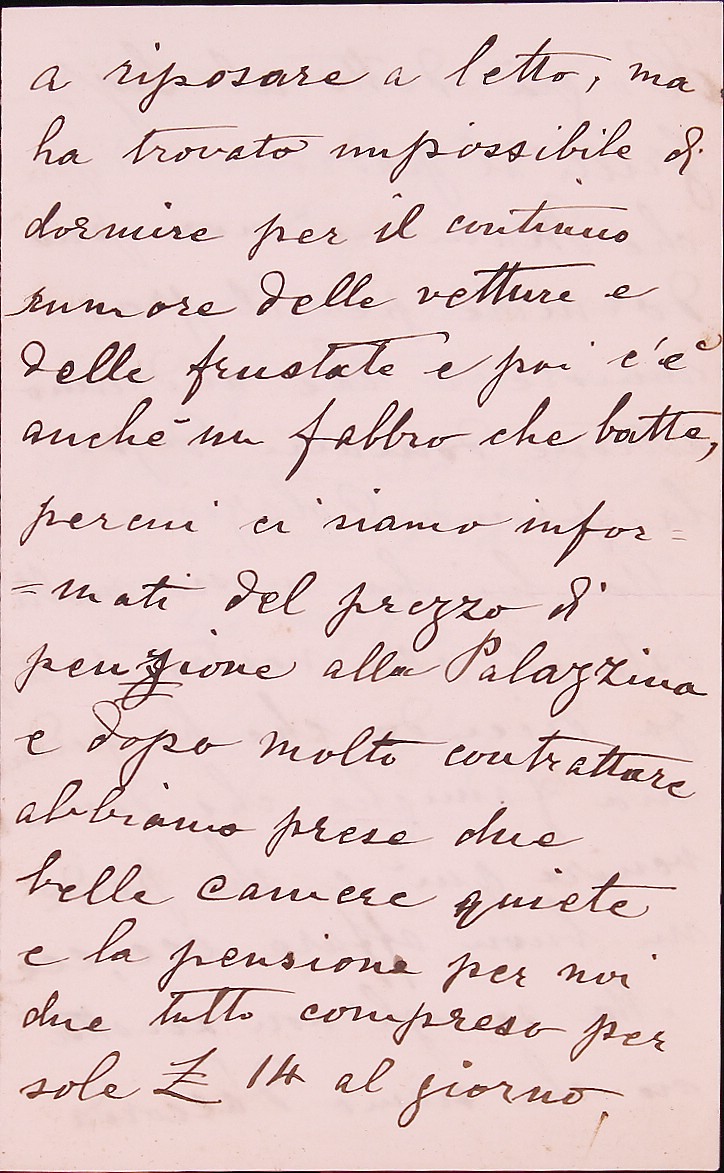 a riposare a letto, ma
ha trovato impossibile di
dormire per il continuo
rumore delle vetture e
delle frustate e poi c'è
anche un fabbro che batte,
percui ci siamo infor=
=mati del prezzo di
penzione alla Palazzina
e dopo molto contrattare
abbiamo prese due
belle camere quiete
e la pensione per noi
due tutto compreso per
sole £ 14 al giorno,